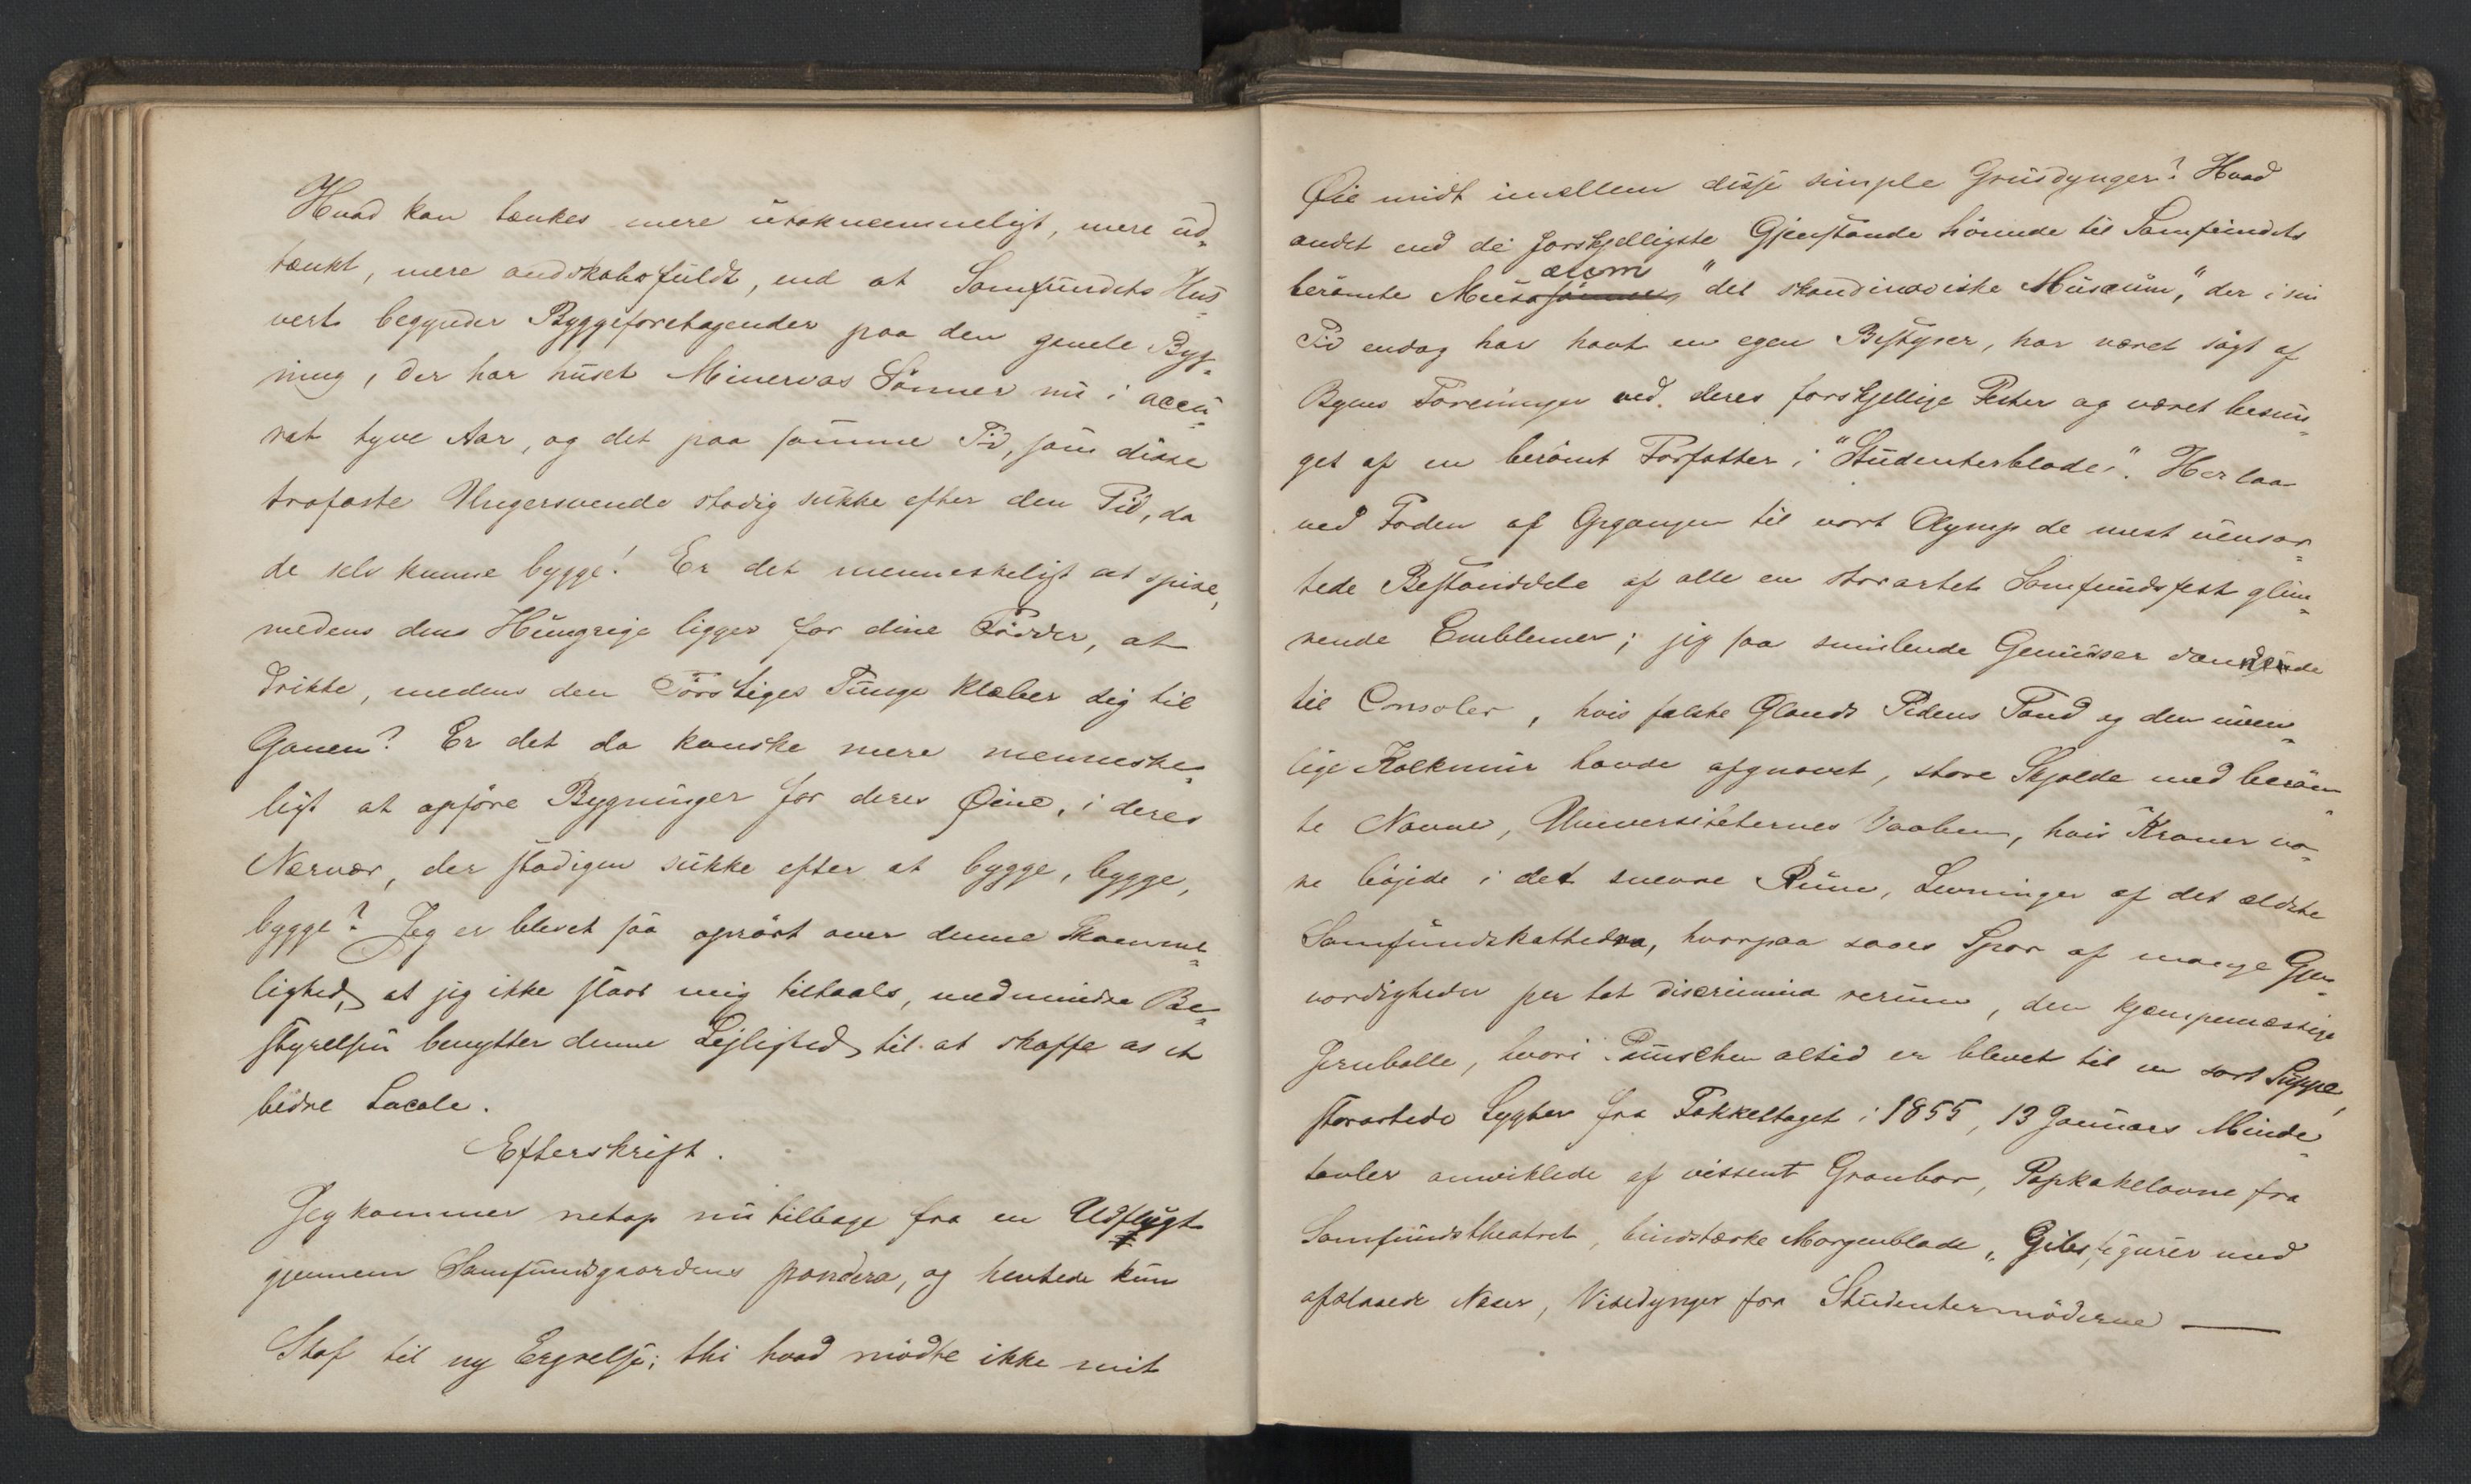 Hvad kan tænkes mere utaknemmeligt, mere ud-
tænkt, mere ondskabsfuldt, end at Samfundets Hus-
vert begynder Byggeforetagender paa den gamle Byg-
ning, der har huset Minervas Sönner nu i accu-
rat tyve Aar, og det paa samme Tid, som disse
trofaste Ungersvende stadig sukke efter den Tid, da
de selv kunne bygge! Er det menneskeligt at spise,
medens den Hungrige ligger for dine Födder, at
drikke, medens den Törstiges Tunge klæber sig til
Ganen? Er det da kanske mere menneske-
ligt at opföre Bygninger for deres Øine, i deres
Nærvær, der stadigen sukke efter at bygge, bygge,
bygge? Jeg er blevet saa oprört over denne Skamme-
lighed, at jeg ikke slaar mig tiltaals, medmindre Be-
styrelsen benytter denne Lejlighed til at skaffe os et
bedre Locale.
Efterskrift.
Jeg kommer netop nu tilbage fra en Udflugt
gjennem Samfundsgaardens pondera, og hentede kun
Stof til ny Ergrelse; thi hvad mödte ikke mit
Øie midt imellem disse simple Grusdynger? Hvad
andet end de forskjelligste Gjenstande hörende til Samfundets
æum
berömte Musa "det skandinaviske Musæum", der i sin
Tid endog har havt en egen Bestyrer, har været sögt af
Byens Foreninger ved deres forskjellige Fester og været besun-
get af en berömt Forfatter i "Studenterblade". Her laa
ved Foden af Opgangen til vort Olymp de mest uensar-
tede Bestanddele af alle en storartet Samfundsfest glim-
rende Emblemer; jeg saa smilende Genuisser dannede
til Consoler, hvis falske Glands Tidens Tand og den uven-
lige Kalkmur havde afgnavet, store Skjolde med beröm-
te Navne, Universiteternes Vaaben, hvis Kroner va-
re böjede i det snevre Rum, Levninger af det ældste
Samfundskathedra, hvorpaa saaes Spor af mange Gjen-
vordigheder per tot discrimina rerum, den kjæmpemæssige
Jernbolle, hvori Punschen altid er blevet til en sort Suppe,
storartede Lygter fra Fakkeltoget i 1855, 13 Januars Minde-
tavler omviklede af vissent Granbar, Papkakelovne fra
Samfundstheatret, bindstærke Morgenblade, Gibsfigurer med
afslaaede Næser, Visedynger fra Studentermöderne —